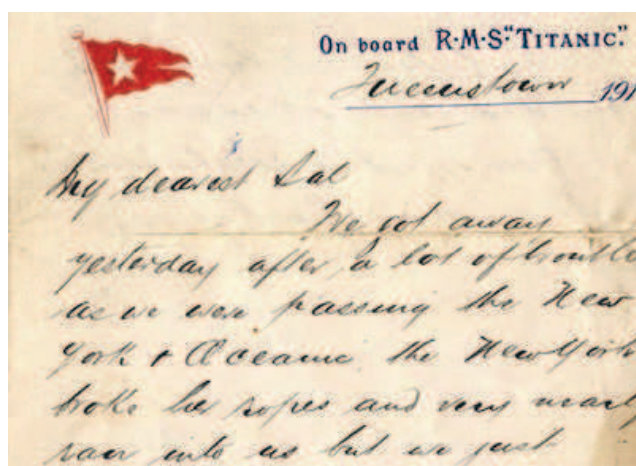 On board R·M·S·"TITANIC."
Queenstown 191
My dearest Sal
We got away
yesterday after a lot of trouble
as we were passing the New
York & Oceanic the New York
broke her ropes and very nearly
ran into us but we just